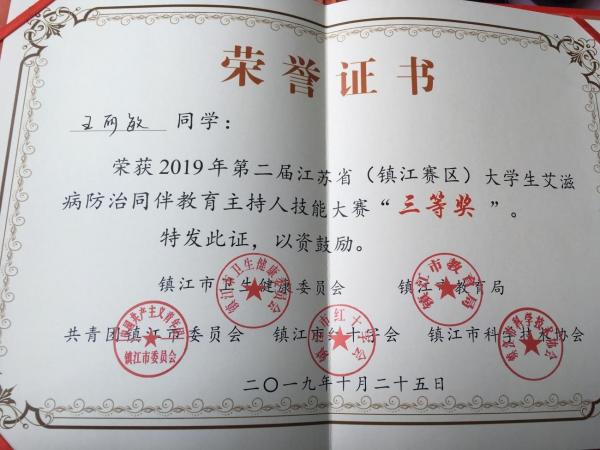 荣誉证书
王丽敏 同学：
荣获2019年第二届江苏省（镇江赛区）大学生艾滋
病防治同伴教育主持人技能大赛“三等奖”。
特发此证，以资鼓励。
镇江市卫生健康委员会 镇江市教育局
共青团镇江市委员会 镇江市红十字会 镇江市科学技术协会
二〇一九年十月二十五日
镇江市卫生健康委员会
镇江市教育局
中国共产主义青年团
镇江市委员会
镇江市红十字会
镇江市科学技术协会